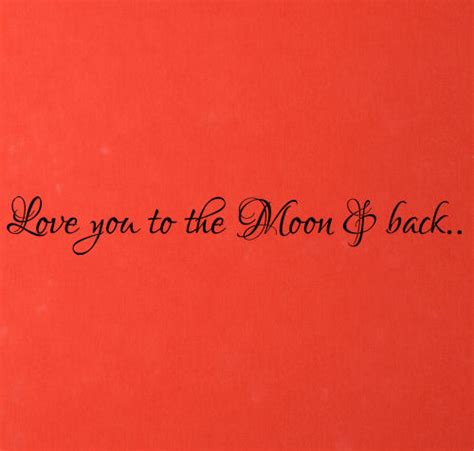 Love you to the Moon & back..